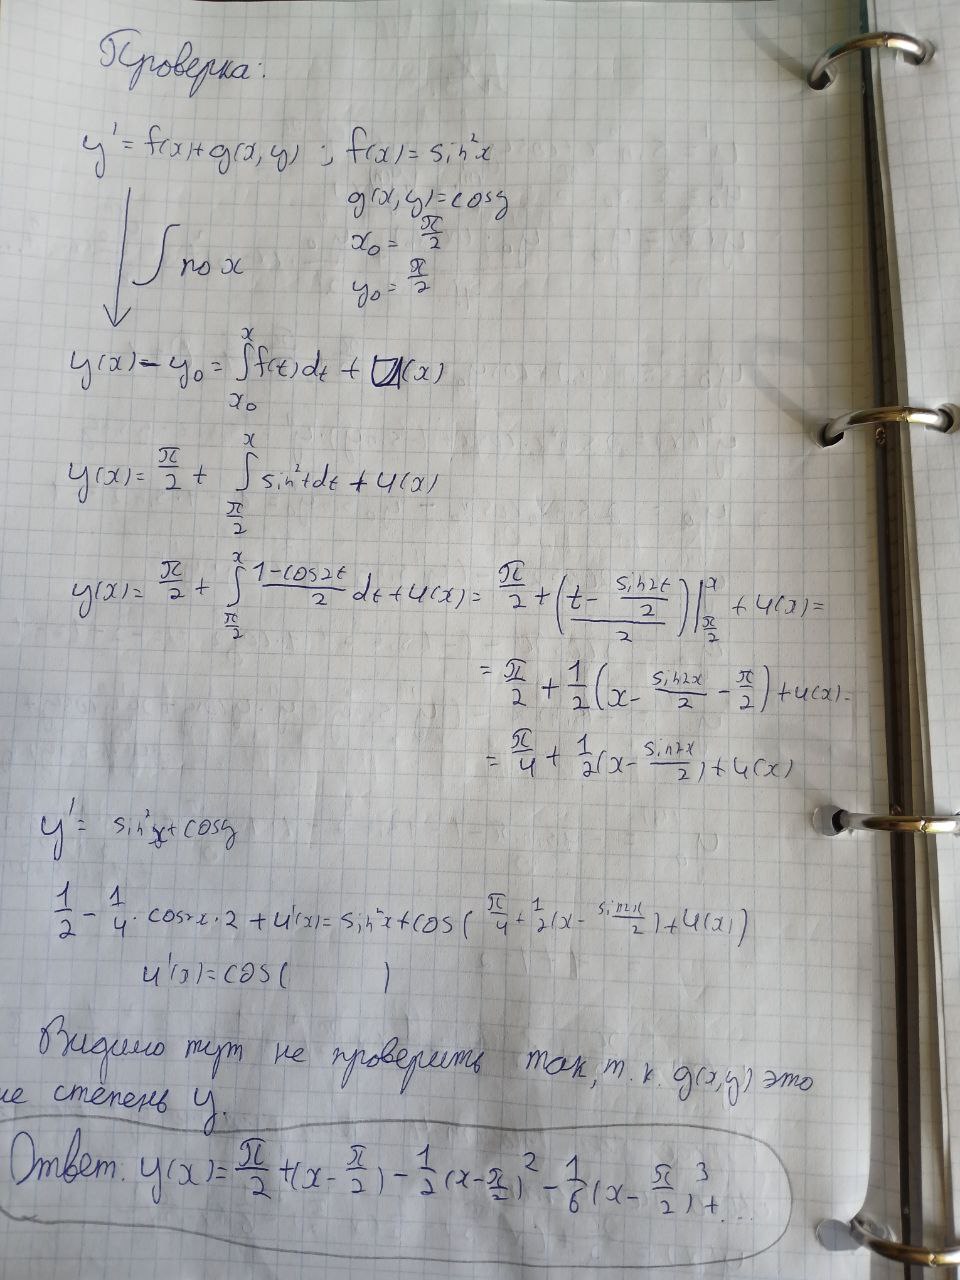 Проверка:
y' = f(x)+g(x,y) ; f(x) = sin²x
g(x,y)=cosy
x₀ = π/2
∫ по x
y₀ = π/2
y(x) - y₀ = ∫_{x₀}^{x} f(t)dt + u(x)
y(x) = π/2 + ∫_{π/2}^{x} sin²t dt + u(x)
y(x) = π/2 + ∫_{π/2}^{x} (1-cos2t)/2 dt + u(x) = π/2 + ((t - (sin2t)/2)/2)|_{π/2}^{x} + u(x) =
= π/2 + 1/2 (x - (sin2x)/2 - π/2) + u(x) =
= π/4 + 1/2 (x - (sin2x)/2) + u(x)
y' = sin²x + cosy
1/2 - 1/4 · cos2x · 2 + u'(x) = sin²x + cos( π/4 + 1/2 (x - (sin2x)/2) + u(x) )
u'(x) = cos( )
Видимо тут не проверить так, т.к. g(x,y) это
не степень y.
Ответ. y(x) = π/2 + (x - π/2) - 1/2 (x - π/2)² - 1/6 (x - π/2)³ + ...